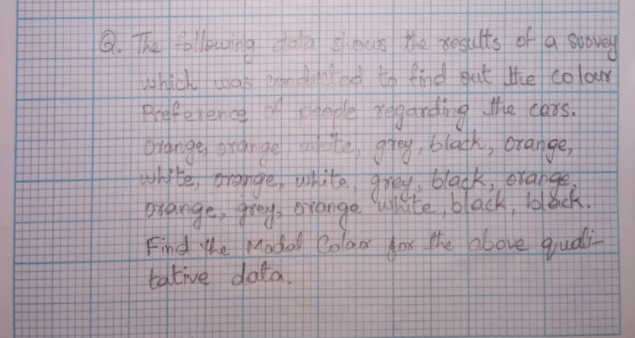 Q. The following data shows the results of a survey
which was conducted to find out the colour
Preference of people regarding the cars.
Orange, orange white, grey, black, orange,
white, orange, white, grey, black, orange,
orange, grey, orange white, black, black.
Find the Modal Colour for the above quali-
tative data.